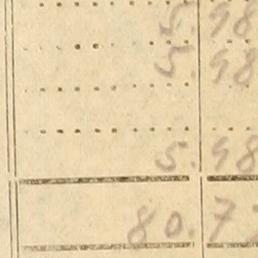 5.98
5.98
5.98
80.7